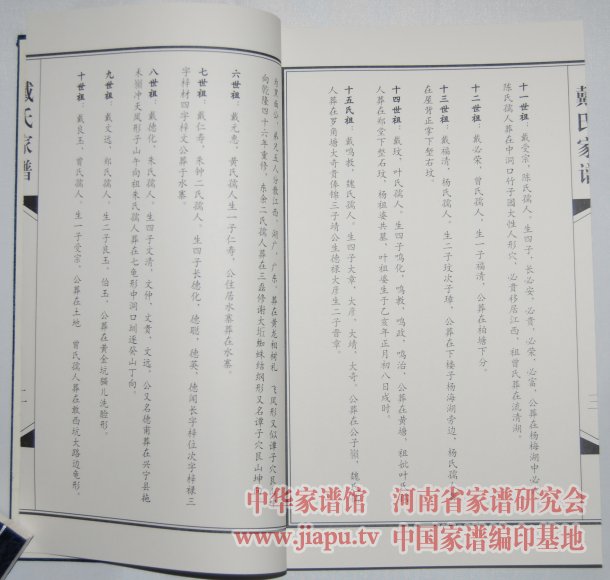 戴氏家谱
十一世祖：戴受宗，陈氏孺人。生四子，长必安，必贵，必荣，必富。公葬在杨梅湖中必
陈氏孺人葬在中洞口竹子园大性人形穴，必贵移居江西，祖曾氏葬在流清湖。
十二世祖：戴必荣，曾氏孺人，生一子福清，公葬在柏塘下分。
十三世祖：戴福清，杨氏孺人。生二子玟次子璋，公葬在下楼子杨海湖旁边，杨氏孺人
在屋背正掌下墪右坟。
十四世祖：戴玟，叶氏孺人。生四子鸣化，鸣教，鸣政，鸣治，公葬在黄塘，祖妣叶氏
人葬在郑堂下墪右坟，杨祖婆共墓，叶祖婆生于乙亥年正月初八日戌时。
十五氏祖：戴鸣教，魏氏孺人。生四子大章，大彦，大靖，大奇。公葬在公子嶺，魏
人葬在罗角塘大奇贵傣锦三子靖公生德禄大彦生二子晋章。
戴氏家谱
为里面公，弟兄五人分散江西，湖广，广东，葬在黄龙相树礼 飞凤形又似谭子穴艮
向乾隆四十六年重修，东余二氏孺人葬在三磊修谢大坵蜘蛛结纲形又名谭子穴艮山坤
六世祖：戴元忠，黄氏孺人生一子仁寿，公住居水寨葬在水寨。
七世祖：戴仁寿，朱钟二氏孺人。生四子长德化，德聪，德英，德闻长字梓位次字梓禄三
字梓材四字梓文公葬于水寨。
八世祖：戴德化，朱氏孺人。生四子文清，文仲，文贵，文远，公又名德甫葬在兴宁县拖
木嶺冲天凤形子山午向祖朱氏孺人葬在七龟形中洞口圳逐癸山丁向。
九世祖：戴文远，郑氏孺人。生二子良玉，伯玉，公葬在黄金坑猫儿洗脸形。
十世祖：戴良玉，曾氏孺人，生一子受宗，公葬在土地 曾氏孺人葬在敖西坑大路边龟形，
二
中华家谱馆 河南省家谱研究会
www.jiapu.tv 中国家谱编印基地